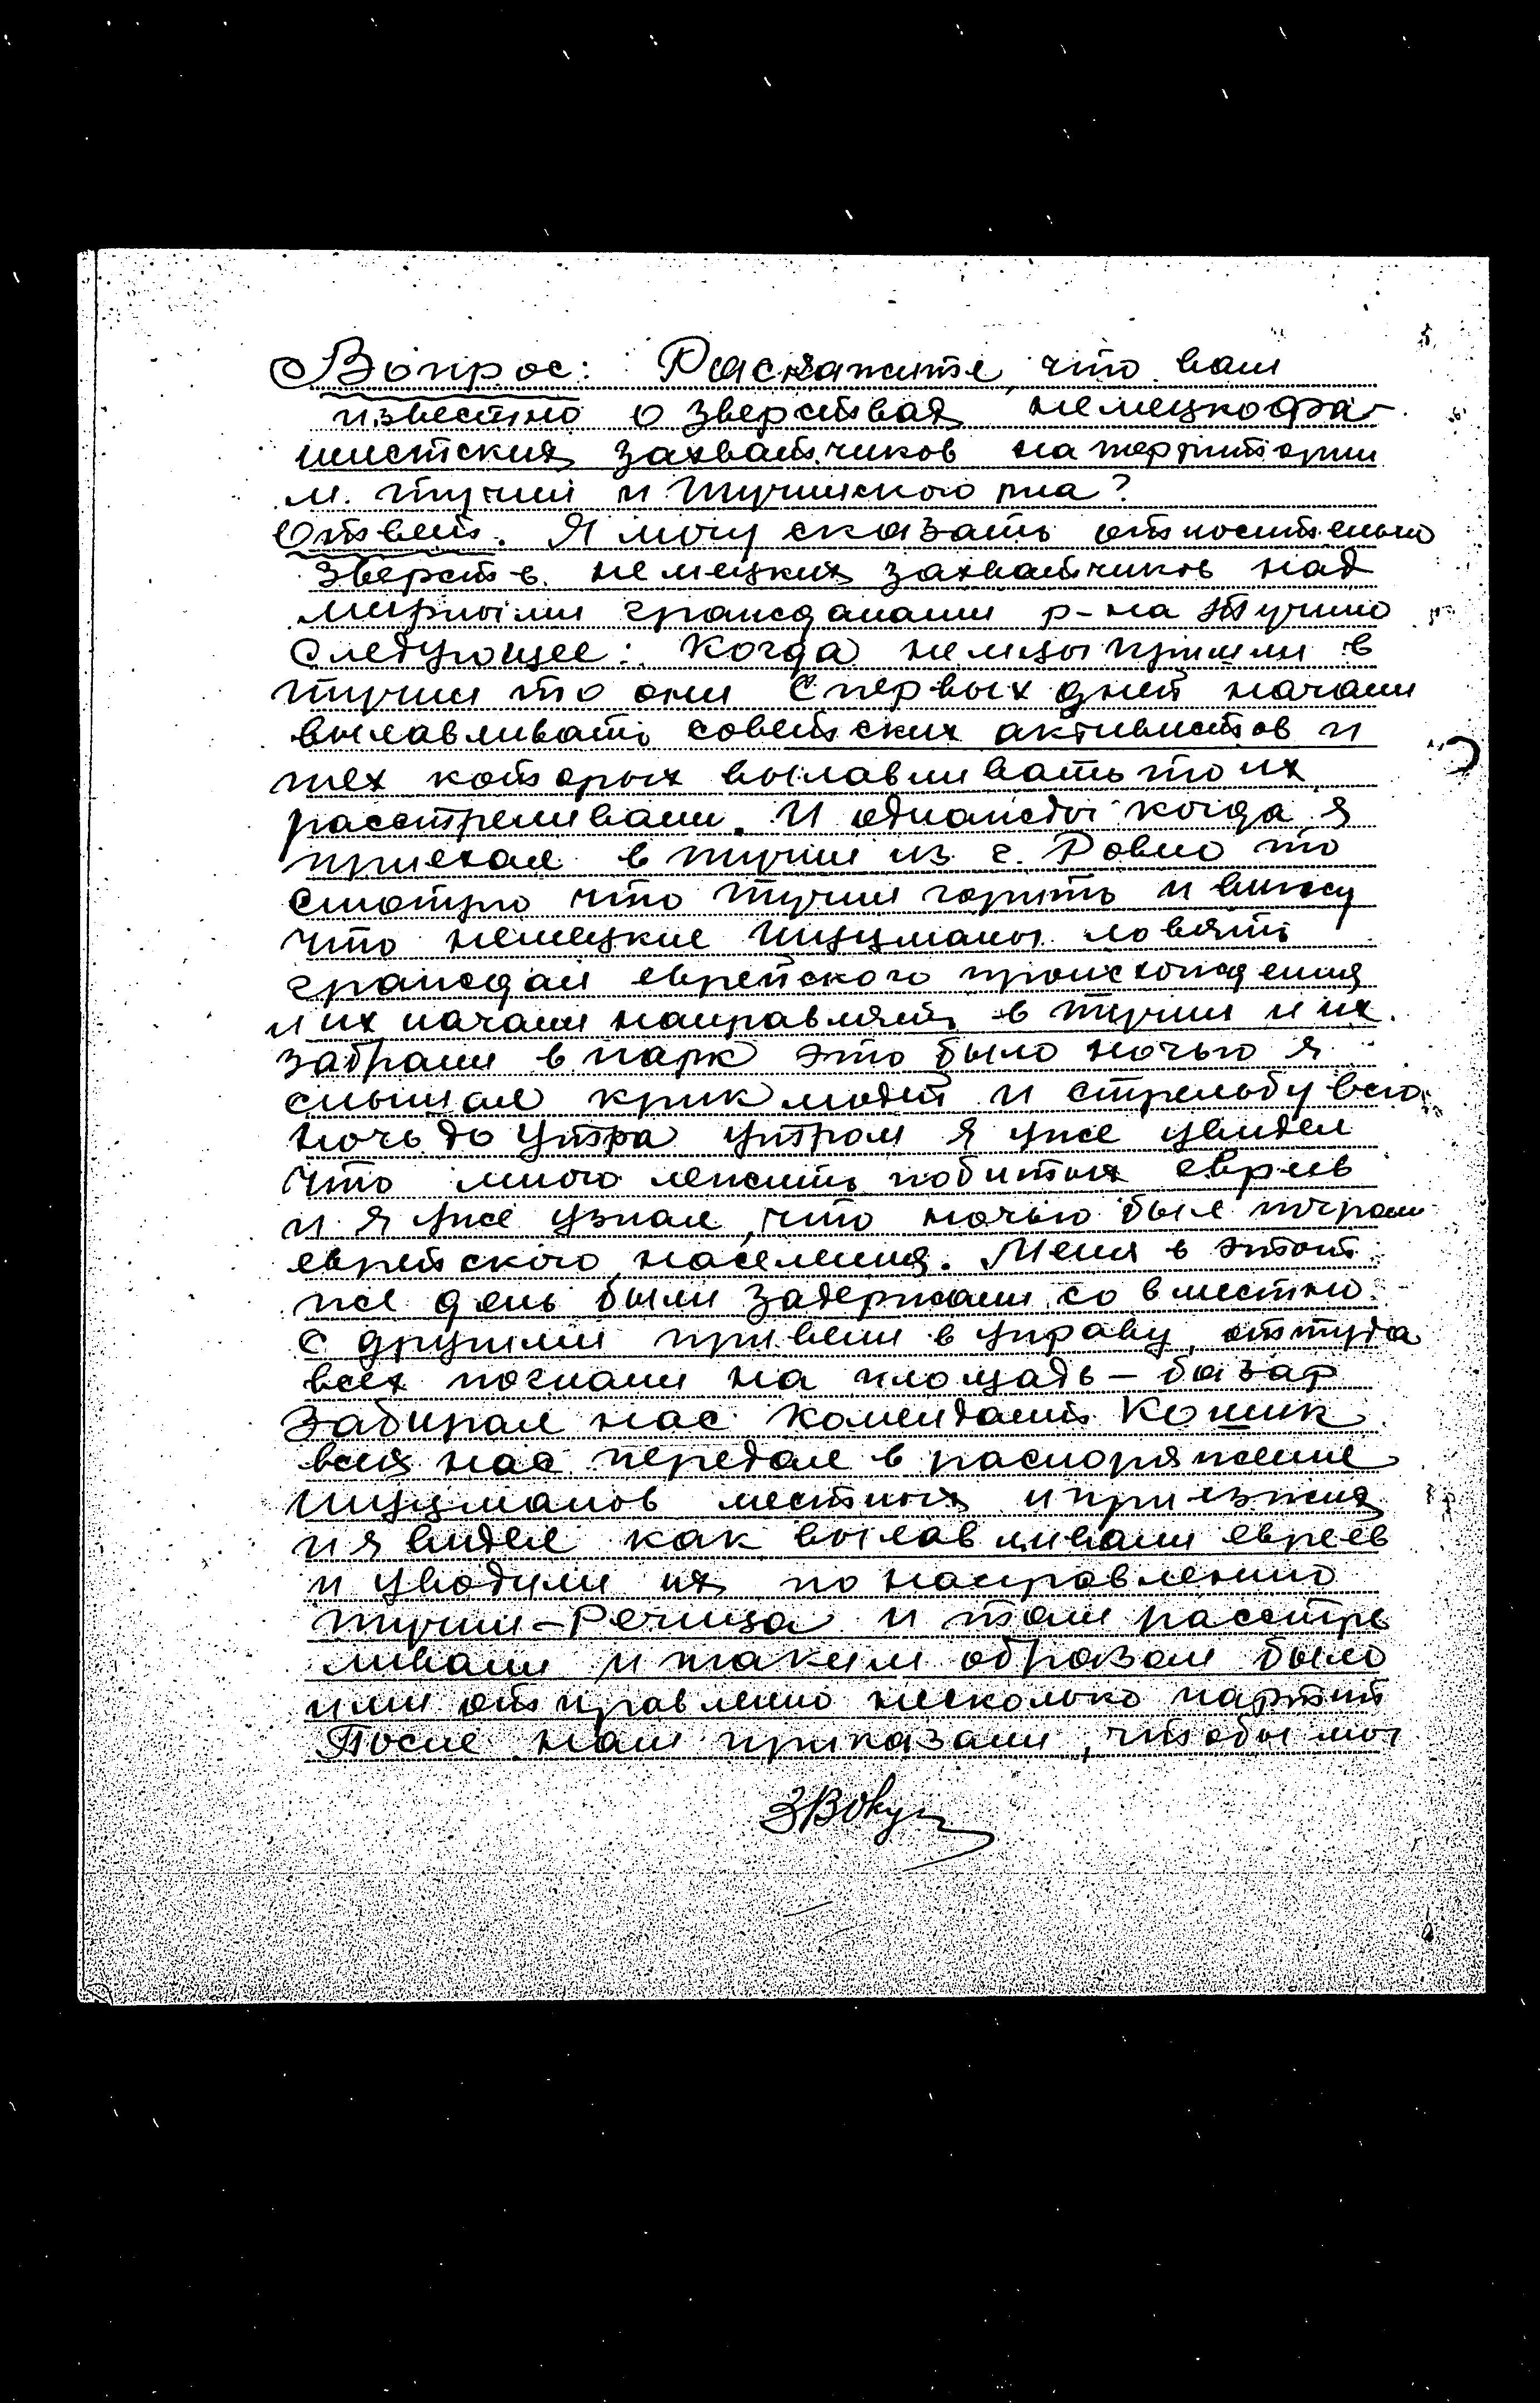 Вопрос: Раскажите, что вам
известно о зверствах немецкофа-
шистских захватчиков на территории
м. Тучин и Тучинского рна?
Ответ. Я могу сказать относительно
зверств немецких захватчиков над
мирными гражданами р-на Тучино
следующее: Когда немцы пришли в
Тучин то они с первых дней начали
вылавливать советских активистов и
тех которых вылавливать то их
расстреливали. И однажды когда я
приехал в Тучин из г. Ровно то
смотрю что Тучин горить и вижу
что немецкие шуцманы ловять
граждан еврейского происхождения
и их начали направлять в Тучин и их
забрали в парк это было ночью я
слышал крик людей и стрельбу всю
ночь до утра утром я уже увидел
что много лежить побитых евреев
и я уже узнал, что ночью был погром
еврейского населения. Меня в этот
же день были задержали со вместно
с другими привели в управу, оттуда
всех погнали на площадь – базар
Забирал нас комендант Кошик
всех нас передал в распоряжение
шуцманов местных и приезжих
и я видел как вылавливали евреев
и уводили их по направлению
Тучин-Речица и там расстре
ливали и таким образом было
ими отправлено несколько партий
После нам приказали, чтобы мы